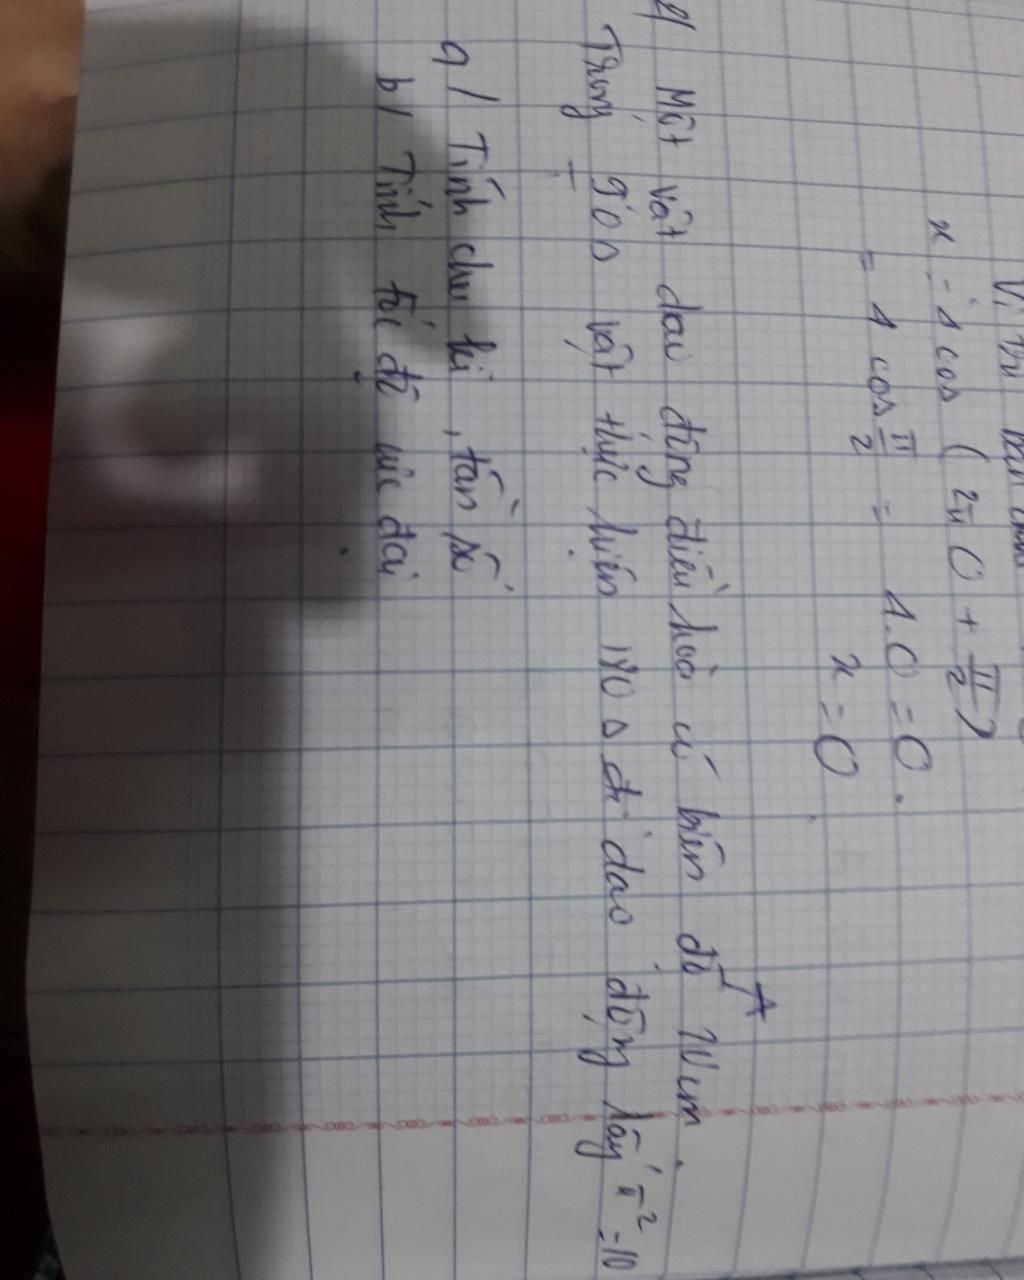 Vị trí ban
x = 4 cos ( 2π 0 + π/2 )
= 4 cos π/2 = 4.0 = 0.
x = 0
Một vật dao động điều hoà có biên độ A cm.
Trong 90s vật thực hiện 180 dao động lấy π² = 10
a/ Tính chu kì, tần số
b/ Tính tốc độ cực đại